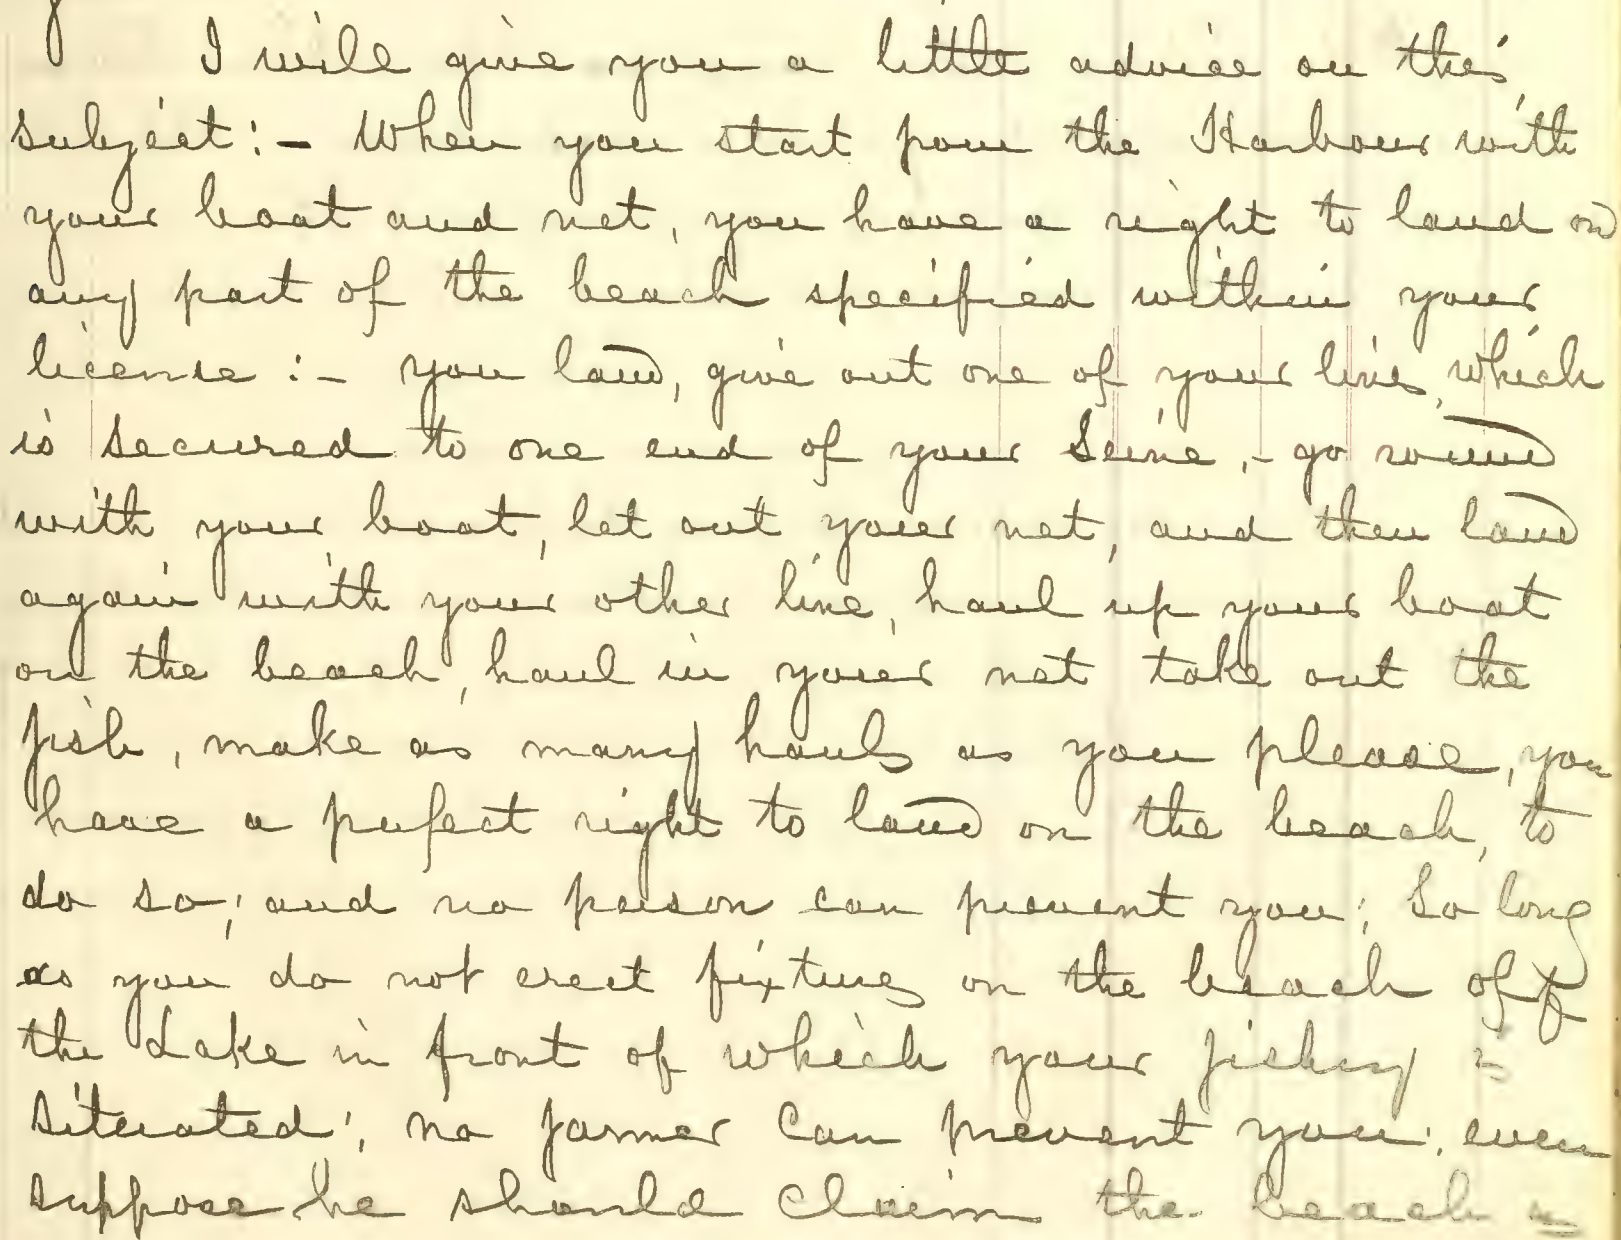 I will give you a little advice on this,
subject:- When you start from the Harbour with
your boat and net, you have a right to land on
any part of the beach specified within your
license:- you land, give out one of your lines, which
is secured to one end of your Seine,- go round
with your boat, let out your net, and then land
again with your other line, haul up your boat
on the beach, haul in your net take out the
fish, make as many hauls as you please, you
have a perfect right to land on the beach, to
do so; and no person can prevent you; So long
as you do not erect fixtures on the beach off
the Lake in front of which your fishery is
situated; no farmer can prevent you; even
suppose he should claim the beach